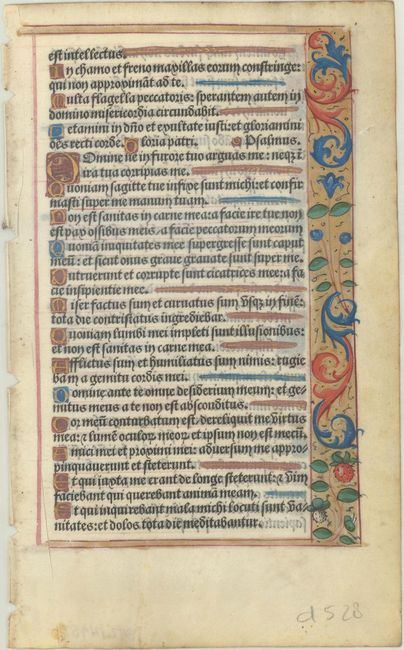 est intellectus.
In chamo et freno maxillas eorum constringe:
qui non approximāt ad te.
Multa flagella peccatoris: sperantem autem in
domino misericordia circundabit.
Letamini in dño et exultate iusti: et gloriamini
oēs recti corde. Gloria patri. Psalmus.
Domine ne in furore tuo arguas me: neqȝ ī
ira tua corripias me.
Quoniam sagitte tue infixe sunt michi: et confir
masti super me manum tuam.
Non est sanitas in carne mea: a facie ire tue non
est pax ossibus meis a facie peccatorum meorum
Quoniā iniquitates mee supergresse sunt caput
meū: et sicut onus graue grauate sunt super me.
Putruerunt et corrupte sunt cicatrices mee: a fa
cie insipientie mee.
Miser factus sum et curuatus sum vsqȝ in finē:
tota die contristatus ingrediebar.
Quoniam lumbi mei impleti sunt illusionibus:
et non est sanitas in carne mea.
Afflictus sum et humiliatus sum nimis: rugie
bam a gemitu cordis mei.
Domine ante te omne desiderium meum: et ge-
mitus meus a te non est absconditus.
Cor meū conturbatum est. dereliquit me virtus
mea: et lumē oculoꝝ meoꝝ: et ipsum non est mecū.
Amici mei et proximi mei: aduersum me appro-
pinquauerunt et steterunt.
Et qui iuxta me erant de longe steterunt: et vim
faciebant qui querebant animā meam.
Et qui inquirebant mala michi locuti sunt va-
nitates: et dolos tota die meditabantur.
d 528